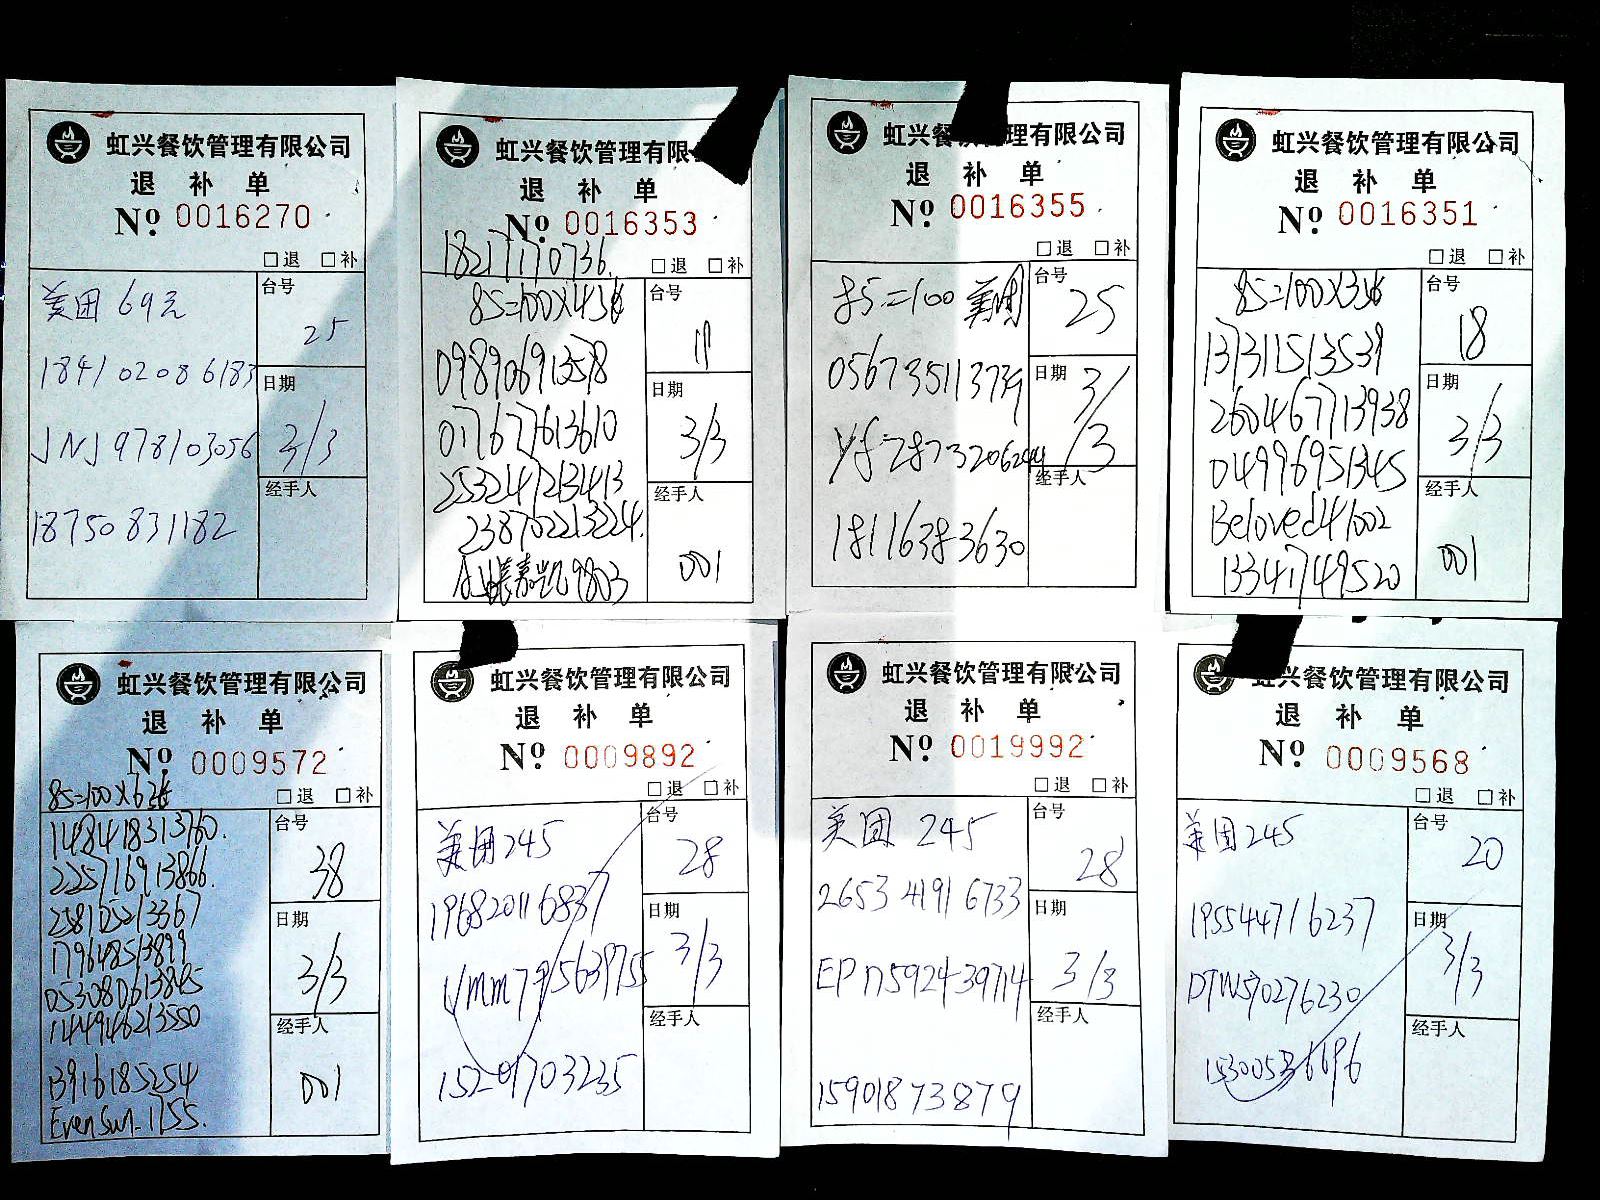 虹兴餐饮管理有限公司
退 补 单
Nº 0016270
□退 □补
美团 69元
1841 0208 6183
JNJ 978103056
18750831182
台号
25
日期
3/3
经手人
虹兴餐饮管理有限
退 补 单
Nº 0016353
18217170736
□退 □补
85=100×4张
098906913578
017677613610
253247213413
238702213224
9803
台号
11
日期
3/3
经手人
001
虹兴餐 理有限公司
退 补 单
Nº 0016355
□退 □补
85=100 美团
056735113739
18116383630
台号
25
日期
3/3
经手人
虹兴餐饮管理有限公司
退 补 单
Nº 0016351
□退 □补
85=100×3张
131311513539
260467713938
04996951345
Beloved41002
13341749520
台号
18
日期
3/3
经手人
001
虹兴餐饮管理有限公司
退 补 单
Nº 0009572
85=100×6张
□退 □补
148418313760.
225716913866.
258105213367
179648513899
053080613845
144946213550
13916185254
EvenSun-1755.
台号
38
日期
3/3
经手人
001
虹兴餐饮管理有限公司
退 补 单
Nº 0009892
□退 □补
美团245
196820116837
15201703235
台号
28
日期
3/3
经手人
虹兴餐饮管理有限公司
退 补 单
Nº 0019992
□退 □补
美团 245
2653 4191 6733
EPN592439714
15901873879
台号
28
日期
3/3
经手人
虹兴餐饮管理有限公司
退 补 单
Nº 0009568
□退 □补
美团245
195544716237
DTW570276230
15300536696
台号
20
日期
3/3
经手人